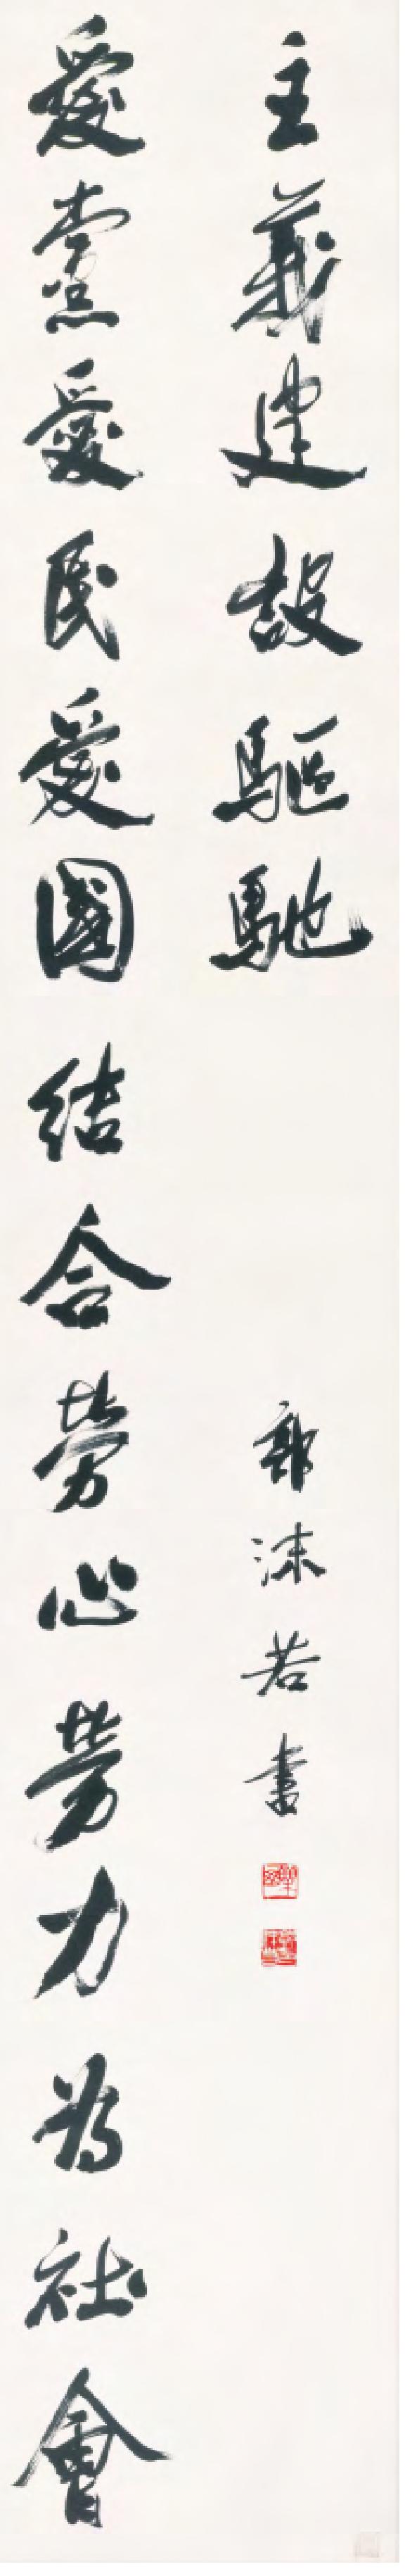 愛黨愛民愛國結合勞心勞力為社會
主義建設驅馳
郭沫若書